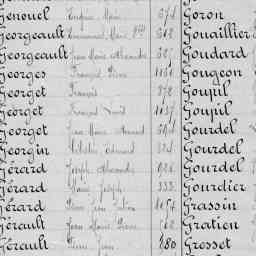 Genouel Eugène Marie 374 Goron
Georgeault Emmanuel Marie 362 Gouaillier
Georgeault Jean Marie Alexandre 327 Goudard
Georges François Pierre 1161 Gougeon
Georget François 878 Goupil
Georget François Louis 1137 Goupil
Georget Jean Marie Armand Gourdel
Georgin Edmond 324 Gourdel
Gérard Joseph Alexandre 926 Gourdel
Gérard Marie Joseph 333 Gourdier
Gérard Pierre Jean 1154 Grassin
Gérault Jean Marie Pierre 762 Gratien
Gérault Pierre Jean 880 Grosset